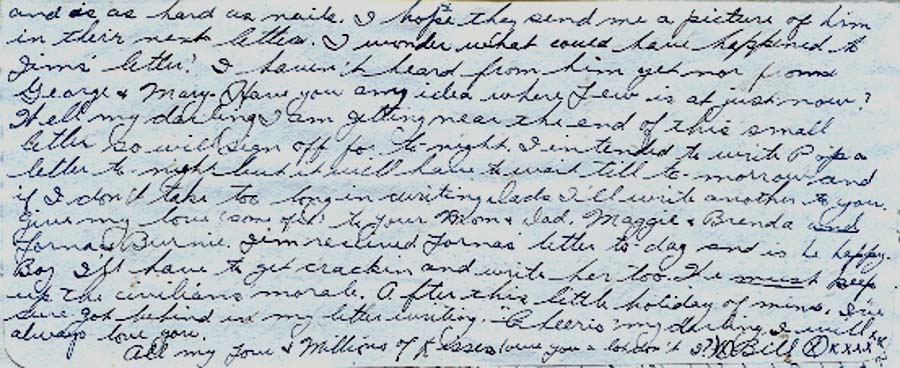 and is as hard as nails. I hope they send me a picture of him
in their next letter. I wonder what could have happened to
Jims' letter? I haven't heard from him yet nor from
George & Mary. Have you any idea where Lew is at just now?
Well my darling I am getting near the end of this small
letter so will sign off for to-night. I intended to write Pop a
letter to-night but it will have to wait till to-morrow and
if I don't take too long in writing Dads I'll write another to you.
Give my love (some of it) to your Mom & Dad, Maggie & Brenda and
Lorna & Burnie. Jim received Lornas' letter to-day and is he happy.
Boy I'll have to get crackin and write her too. We must keep
up the civilians morale. After this little holiday of mine, I've
sure got behind in my letter writing. Cheerio my darling I will
always love you.
All my Love & Millions of Kisses (love you a lot don't I?) Bill xxxx